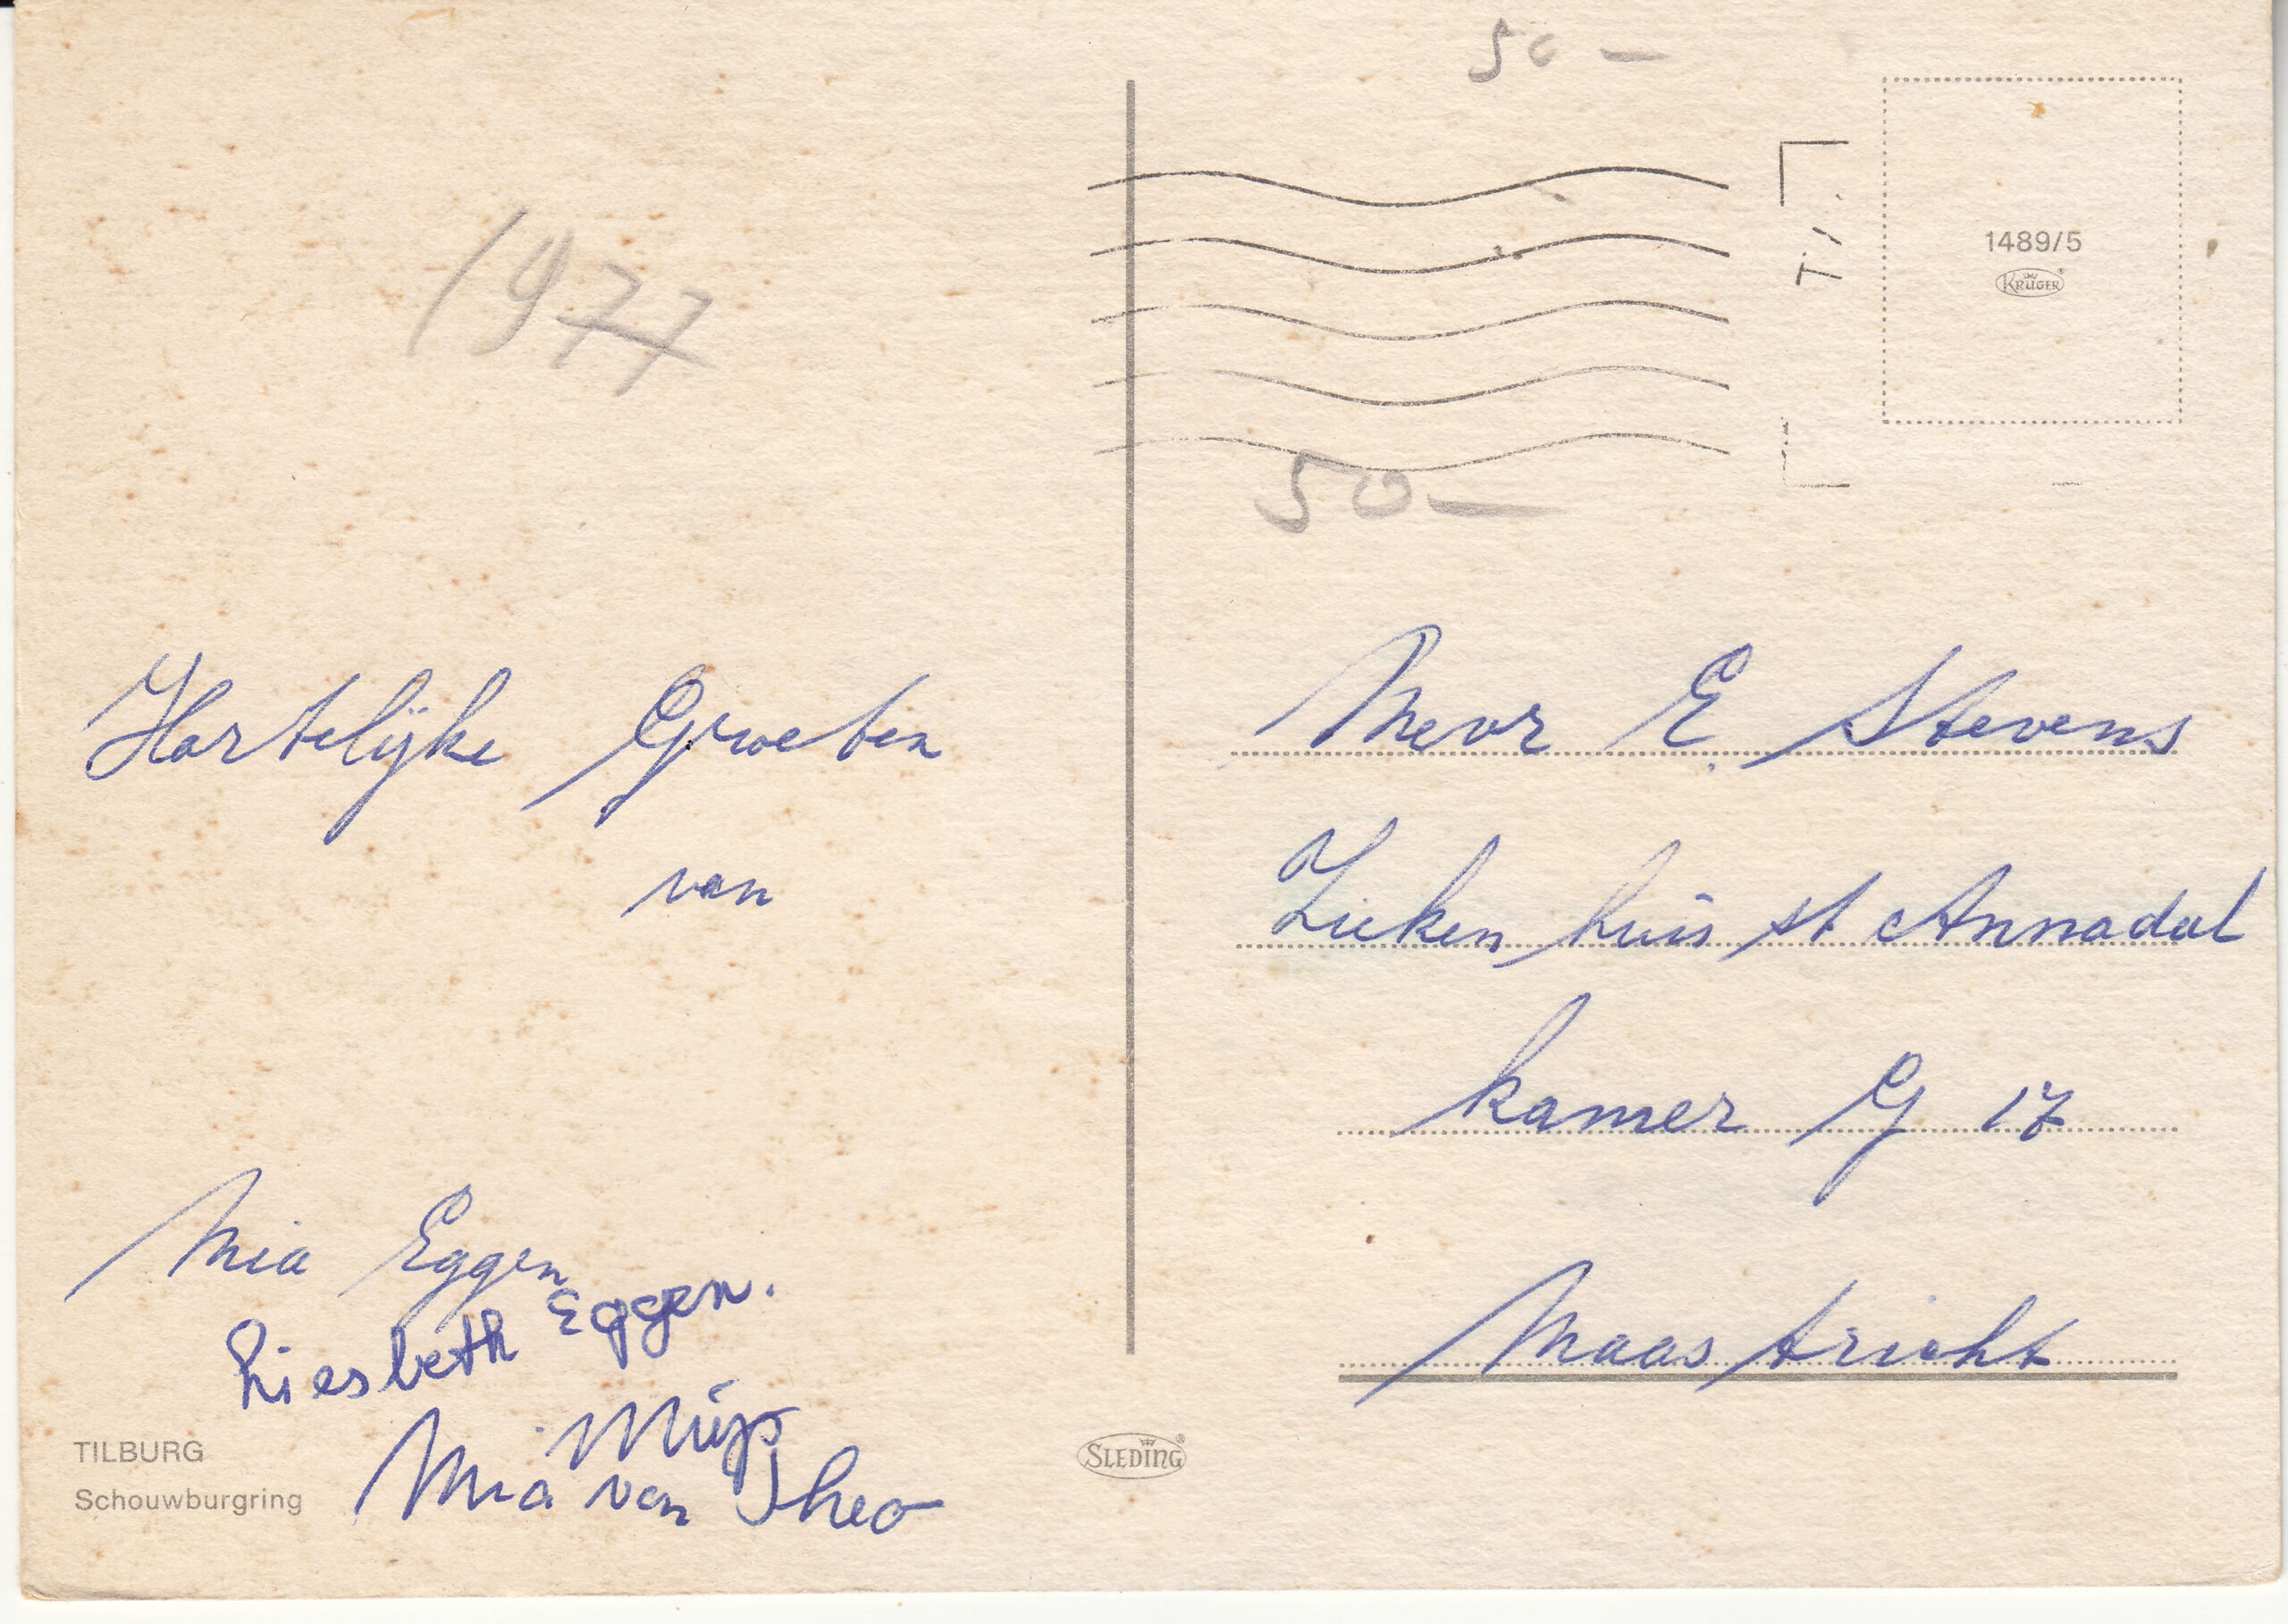 50 —
1977
T/.
1489/5
KRÜGER
50 —
Hartelijke Groeten
van
Mia Eggen
Liesbeth Eggen.
Mia van Theo
TILBURG
Schouwburgring
SLEDING
Mevr E. Stevens
Zieken huis st Annadal
kamer G 17
Maastricht